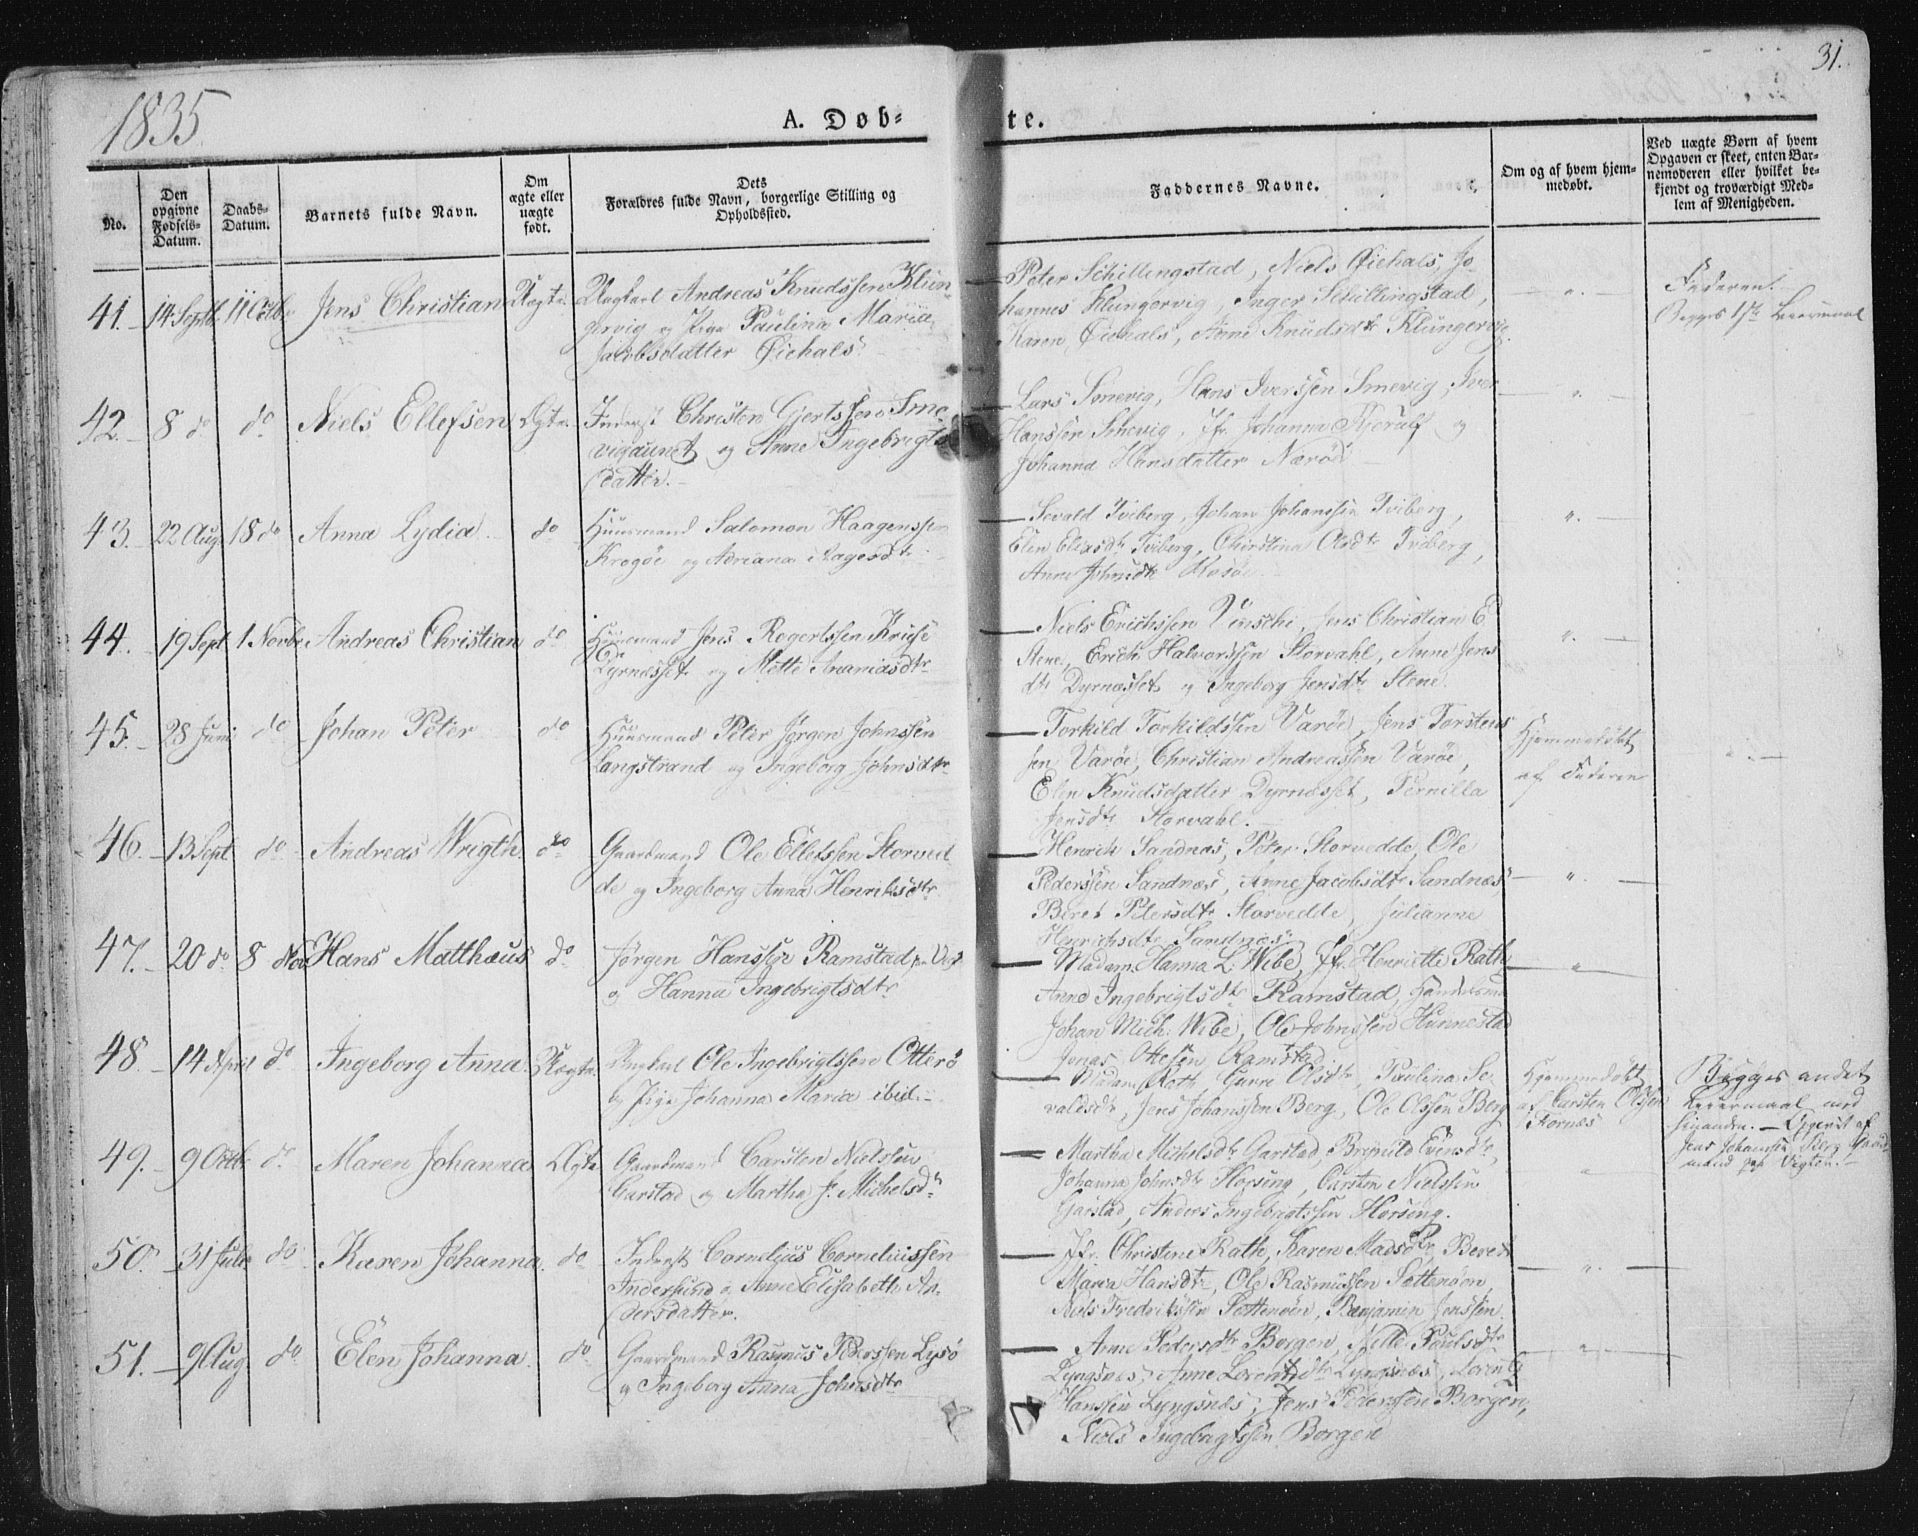 31.
1835
A. Døb-
te.
No.
Den opgivne Fødsels-Datum.
Daabs-Datum.
Barnets fulde Navn.
Om ægte eller uægte født.
Dets Forældres fulde Navn, borgerlige Stilling og Opholdssted.
Faddernes Navne.
Om og af hvem hjem-
medøbt.
Ved uægte Børn af hvem
Opgaven er skeet, enten Bar-
nemoderen eller hvilket be-
kjendt og troværdigt Med-
lem af Menigheden.
41. 14 Septb 11 Octbr Jens Christian Uægte Ungkarl Andreas Knudssen Klun-
gervig og Pige Paulina Maria
Jacobsdatter Øiehals
Peter Schillingstad, Niels Øiehals, Jo-
hannes Klungervig, Inger Schillingstad,
Karen Øiehals, Anne Knudsdtr Klungervig.
Faderen.
Begges 1ste Leiermaal
42. 8 do do Niels Ellefsen Ægte Inderst Christen Gjertssen Sme-
vigaunet og Anne Ingebrigts
datter.
Lars Smevig, Hans Iverssen Smevig, Iver
Hanssen Smevig, Jfr Johanna Kjerulf og
Johanna Hansdatter Nærø
43. 22 Aug 18 do Anna Lydia do Huusmand Salomon Haagenssen
Krogøe og Adriana Aagesdtr
Sevald Tviberg, Johan Johanssen Tviberg,
Elen Eliasdtr Tviberg, Christina Olsdtr Tviberg,
Anne Johnsdtr
44. 19 Sept 1 Novbr Andreas Christian do Huusmand Jens Rogertssen Kruse
Dyrnæsset og Mette Ananiasdtr
Niels Erichssen, Jens Christian E
Stene, Erich Halvorssen Storvahl, Anne Jens
dtr Dyrnæsset og Ingeborg Jensdtr Stene.
45. 28 Juni do Johan Peter do Huusmand Peter Jørgen Johnssen
Langstrand og Ingeborg Johnsdtr
Torkild Torkildssen Varøe, Jens Torstens
sen Varøe, Christian Andreassen Varøe,
Elen Knudsdatter Dyrnæsset, Pernilla
Jensdtr Storvahl.
Hjemmedøbt
af Faderen
46. 13 Sept do Andreas Wrigth do Gaardmand Ole Ellefssen Storved-
de og Ingeborg Anna Henriksdtr
Henrich Sandnæs, Peter Storvedde, Ole
Pederssen Sandnæs, Anne Jacobsdtr Sandnæs
Beret Petersdtr Storvedde, Julianne
Henrichsdtr Sandnæs
47. 20 do 8 Nov Hans Matthæus do Jørgen Hanssen Ramstad
og Hanna Ingebrigtsdtr
Madam Hanna L. Wibe, Jfr Henriette Rath,
Anne Ingebrigtsdtr Ramstad,
Johan Mich: Wibe, Ole Johnssen Hunnestad
Jonas Ottesen Ramstad
48. 14 April do Ingeborg Anna Uægte Ungkarl Ole Ingebrigtssen Otterø
og Pige Johanna Maria ibid.
Madam Rath, Gurre Olsdtr, Paulina Se-
valdsdtr, Jens Johanssen Berg, Ole Olssen Berg
Hjemmedøbt
af Carsten Olssen
Stornæs
Begges andet
Leiermaal med
hinanden. Opgivet af
Jens Johanssen Berg Gaard-
mand paa Vigten.
49. 9 Octbr do Maren Johanna Ægte Gaardmand Carsten Nielssen
Garstad og Martha J. Michelsdtr
Martha Michelsdtr Garstad, Brynild Evensdtr,
Johanna Johnsdtr Horsing, Carsten Nielssen
Garstad, Anders Ingebrigtssen Horsing.
50. 31 Juli do Karen Johanna do Inderst Cornelius Corneliussen
Indersund og Anne Elisabeth An-
dersdatter.
Jfr. Christine Rath, Karen Madsdtr, Beret
Maria Hansdtr, Ole Rasmussen Søttenøen
Niels Fredrikssen Søttenøen, Benjamin Jenssen
51. 9 Aug do Elen Johanna do Gaardmand Rasmus Pederssen Lysø
og Ingeborg Anna Johnsdtr
Anne Pedersdtr Borgen, Nille Poulsdtr
Lyngsnæs, Anne Lorentzdtr Lyngsnæs, Lorentz
Hanssen Lyngsnæs, Jens Pederssen Borgen,
Niels Ingebrigtssen Borgen